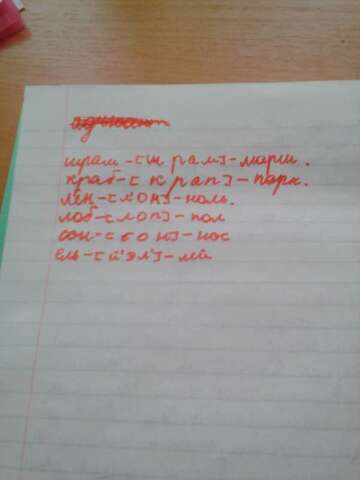 шрам - [ш р а м] - марш.
краб - [к р а п] - парк.
лён - [л' о н] - ноль.
лоб - [л о п] - пол
сон - [с о н] - нос
ель - [й' э л'] - лей